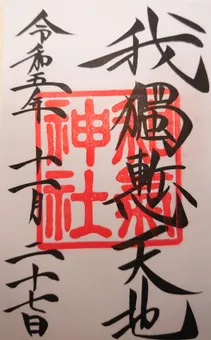 我獨慙天地
令和五年 十一月 二十七日
神社